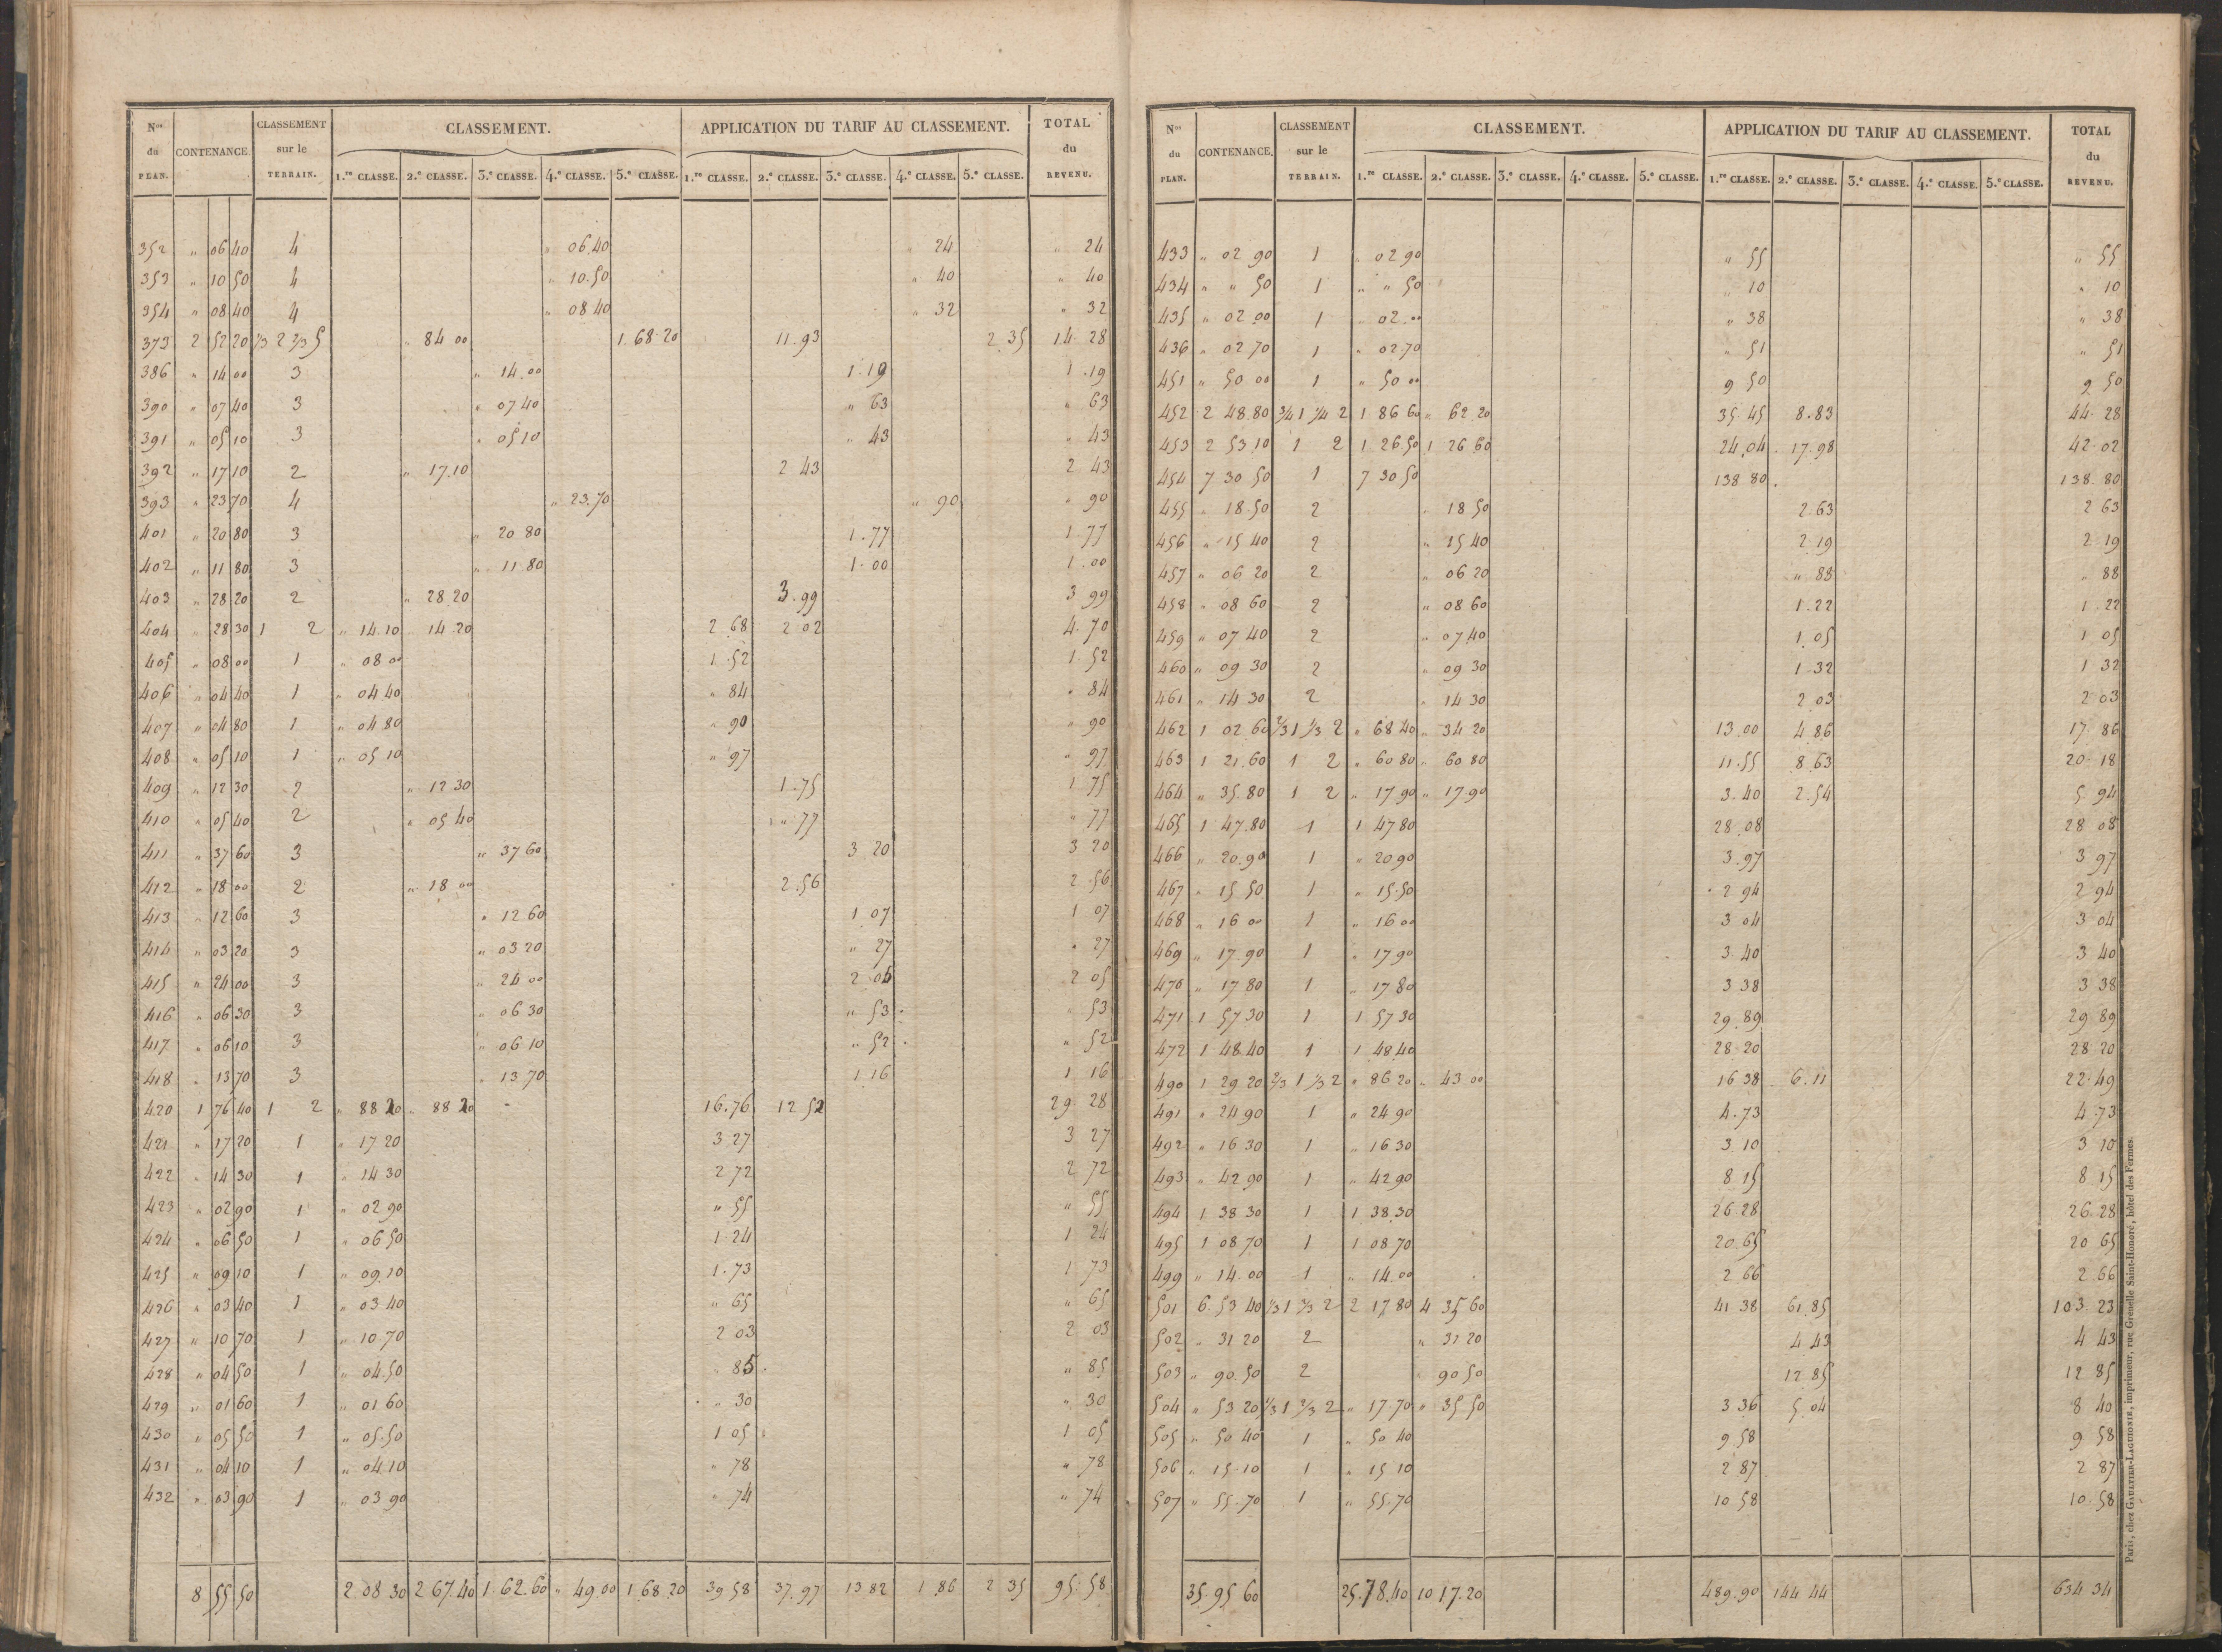 Nos du PLAN. CONTENANCE. CLASSEMENT sur le TERRAIN. CLASSEMENT. APPLICATION DU TARIF AU CLASSEMENT. TOTAL du REVENU.
1.re CLASSE. 2.e CLASSE. 3.e CLASSE. 4.e CLASSE. 5.e CLASSE. 1.re CLASSE. 2.e CLASSE. 3.e CLASSE. 4.e CLASSE. 5.e CLASSE.
352 " 06 40 4 " 06.40 " 24 " 24
353 " 10 50 4 " 10.50 " 40 " 40
354 " 08 40 4 " 08 40 " 32 " 32
373 2 52 20 1/3 2 2/3 5 " 84 00 1.68.20 11.93 2 35 14.28
386 " 14 00 3 " 14.00 1.19 1.19
390 " 07 40 3 " 07 40 " 63 " 63
391 " 05 10 3 " 05 10 " 43 " 43
392 " 17 10 2 " 17.10 2 43 2 43
393 " 23 70 4 " 23.70 " 90 " 90
401 " 20 80 3 " 20 80 1.77 1.77
402 " 11 80 3 " 11.80 1.00 1.00
403 " 28 20 2 " 28.20 3.99 3 99
404 " 28 30 1 2 " 14.10 " 14 20 2 68 2 02 4.70
405 " 08 00 1 " 08 00 1.52 1.52
406 " 04 40 1 " 04 40 " 84 " 84
407 " 04 80 1 " 04 80 " 90 " 90
408 " 05 10 1 " 05 10 " 97 " 97
409 " 12 30 2 " 12 30 1.75 1 75
410 " 05 40 2 " 05 40 " 77 " 77
411 " 37 60 3 " 37 60 3 20 3 20
412 " 18 00 2 " 18 00 2.56 2.56
413 " 12 60 3 " 12 60 1 07 1 07
414 " 03 20 3 " 03 20 " 27 " 27
415 " 24 00 3 " 24 00 2 05 2 05
416 " 06 30 3 " 06 30 " 53 " 53
417 " 06 10 3 " 06 10 " 52 " 52
418 " 13 70 3 " 13 70 1.16 1 16
420 1 76 40 1 2 " 88 20 " 88 20 16.76 12 52 29 28
421 " 17 20 1 " 17 20 3.27 3 27
422 " 14 30 1 " 14 30 2 72 2 72
423 " 02 90 1 " 02 90 " 55 " 55
424 " 06 50 1 " 06 50 1 24 1 24
425 " 09 10 1 " 09.10 1.73 1 73
426 " 03 40 1 " 03 40 " 65 " 65
427 " 10 70 1 " 10 70 2 03 2 03
428 " 04 50 1 " 04.50 " 85 " 85
429 " 01 60 1 " 01 60 " 30 " 30
430 " 05 50 1 " 05.50 1 05 1 05
431 " 04 10 1 " 04.10 " 78 " 78
432 " 03 90 1 " 03 90 " 74 " 74
8 55 50 2 08 30 2 67.40 1.62.60 " 49.00 1 68 20 39 58 37.97 13 82 1 86 2 35 95.58
Nos du PLAN. CONTENANCE. CLASSEMENT sur le TERRAIN. CLASSEMENT. APPLICATION DU TARIF AU CLASSEMENT. TOTAL du REVENU.
1.re CLASSE. 2.e CLASSE. 3.e CLASSE. 4.e CLASSE. 5.e CLASSE. 1.re CLASSE. 2.e CLASSE. 3.e CLASSE. 4.e CLASSE. 5.e CLASSE.
433 " 02 90 1 " 02 90 " 55 " 55
434 " " 50 1 " " 50 " 10 " 10
435 " 02.00 1 " 02.00 " 38 " 38
436 " 02.70 1 " 02.70 " 51 " 51
451 " 50 00 1 " 50 00 9 50 9 50
452 2 48.80 3/4 1 1/4 2 1 86 60 " 62 20 35 45 8.83 44.28
453 2 53.10 1 2 1 26 50 1 26 60 24.04 17.98 42.02
454 7 30 50 1 7 30 50 138 80 138.80
455 " 18.50 2 " 18 50 2.63 2 63
456 " 15 40 2 " 15 40 2 19 2 19
457 " 06 20 2 " 06 20 " 88 " 88
458 " 08 60 2 " 08 60 1.22 1.22
459 " 07 40 2 " 07 40 1.05 1 05
460 " 09 30 2 " 09 30 1 32 1 32
461 " 14 30 2 " 14 30 2 03 2 03
462 1 02.60 2/3 1 1/3 2 " 68 40 " 34 20 13.00 4.86 17.86
463 1 21.60 1 2 " 60 80 " 60 80 11.55 8 63 20.18
464 " 35.80 1 2 " 17 90 " 17.90 3.40 2.54 5 94
465 1 47.80 1 1 47 80 28.08 28 08
466 " 20.90 1 " 20 90 3.97 3 97
467 " 15 50 1 " 15.50 2 94 2 94
468 " 16 00 1 " 16 00 3 04 3 04
469 " 17.90 1 " 17 90 3.40 3 40
470 " 17 80 1 " 17 80 3 38 3 38
471 1 57 30 1 1 57 30 29.89 29 89
472 1 48.40 1 1 48 40 28.20 28 20
490 1 29 20 2/3 1 1/3 2 " 86 20 " 43 00 16 38 6.11 22.49
491 " 24 90 1 " 24 90 4.73 4.73
492 " 16 30 1 " 16 30 3 10 3 10
493 " 42 90 1 " 42 90 8.15 8 15
494 1 38 30 1 1 38.30 26 28 26.28
495 1 08.70 1 1 08.70 20.65 20 65
499 " 14.00 1 " 14.00 2 66 2.66
501 6.53 40 1/3 1 2/3 2 2 17.80 4 35 60 41 38 61.85 103.23
502 " 31 20 2 " 31 20 4 43 4 43
503 " 90.50 2 " 90 50 12 85 12 85
504 " 53 20 1/3 1 2/3 2 " 17.70 " 35 50 3 36 5.04 8 40
505 " 50 40 1 " 50 40 9.58 9.58
506 " 15.10 1 " 15 10 2 87 2 87
507 " 55.70 1 " 55.70 10 58 10.58
35.95 60 25.78.40 10 17.20 489.90 144 44 634 34
Paris, chez GAULTIER-LAGUIONIE, imprimeur, rue Grenelle Saint-Honoré, hôtel des Fermes.